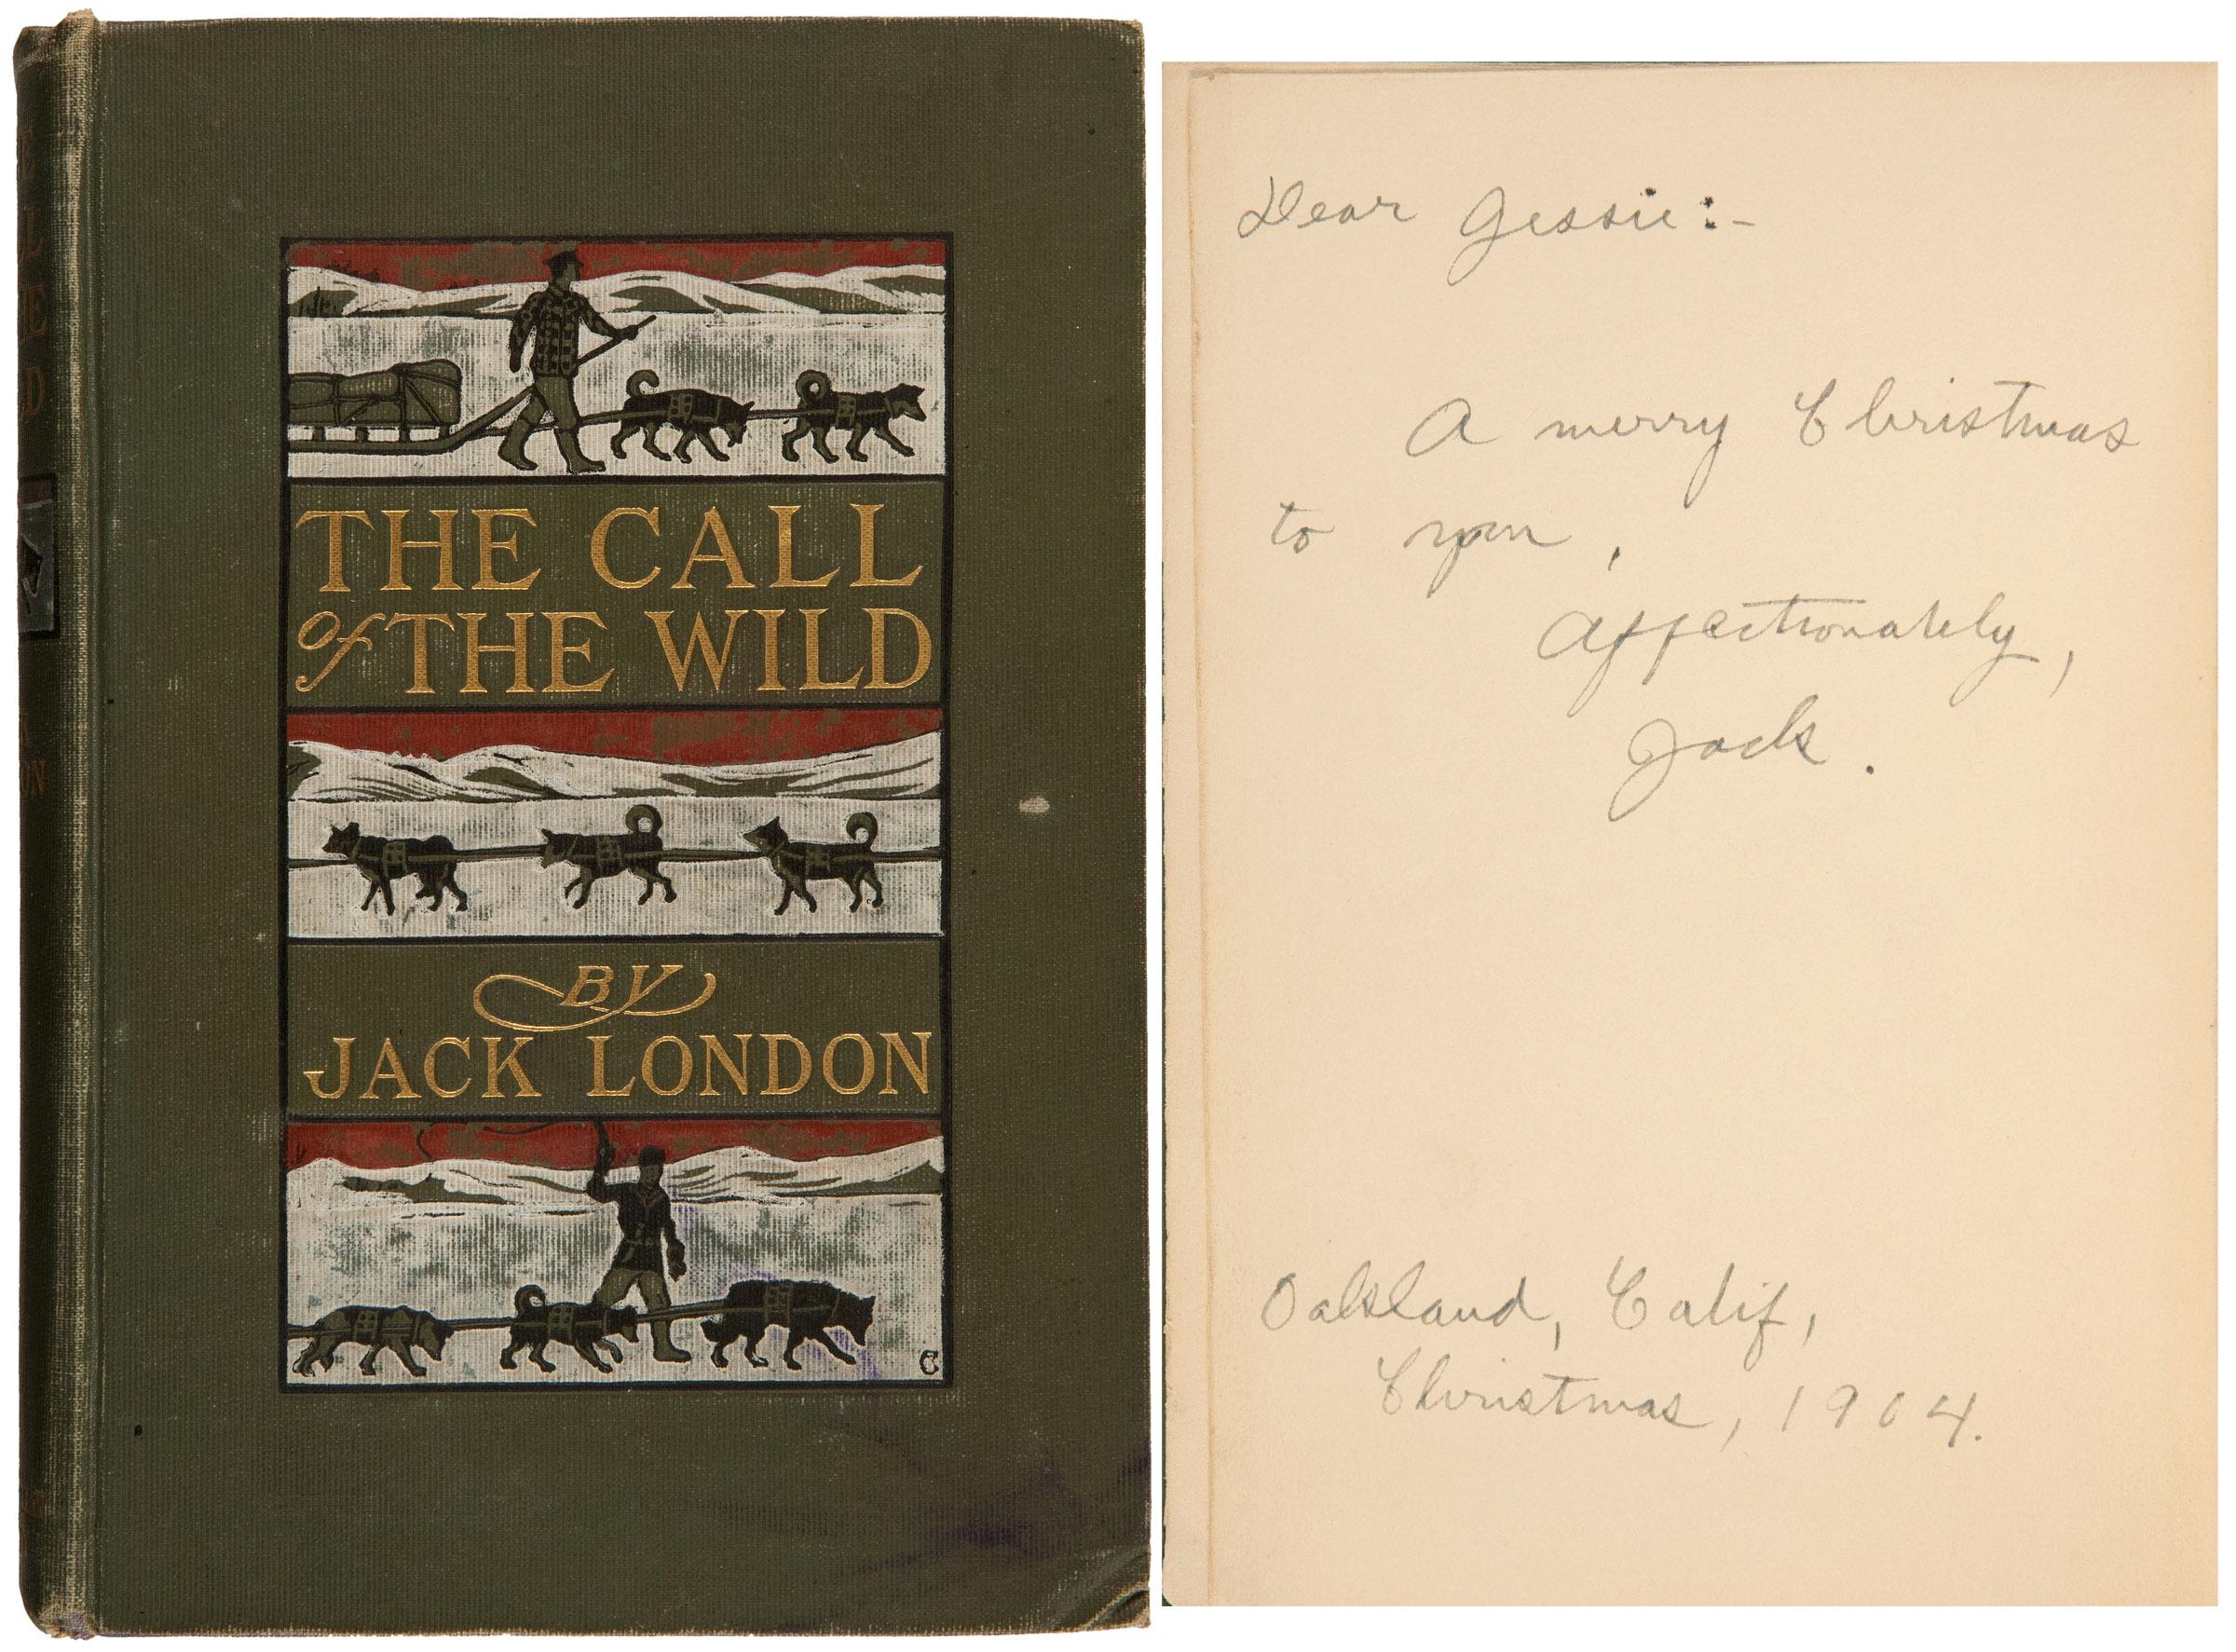 THE CALL
of THE WILD
BY
JACK LONDON
C
Dear Jessie:-
A merry Christmas
to you,
Affectionately,
Jack.
Oakland, Calif,
Christmas, 1904.